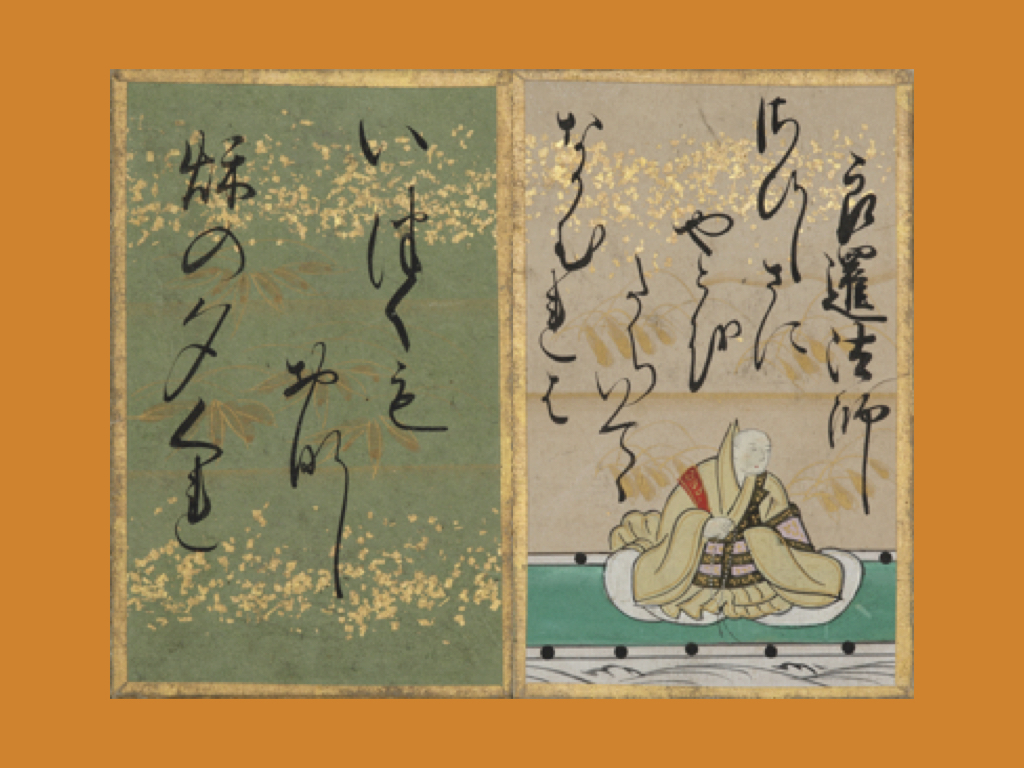 良暹法師
さひしさに
やとを
たちいてゝ
なかむれは
いつくも
おなし
秋の夕くれ